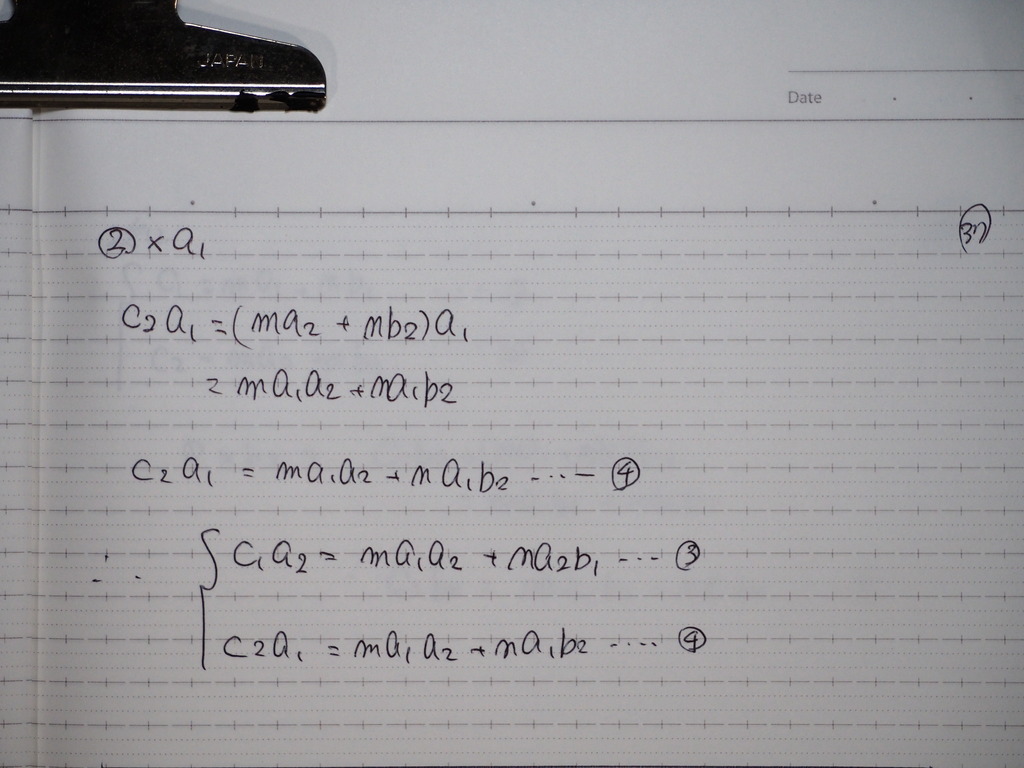 JAPAN
Date
② × a₁
c₂a₁ = (ma₂ + nb₂)a₁
= ma₁a₂ + na₁b₂
c₂a₁ = ma₁a₂ + na₁b₂ ····− ④
∴ { c₁a₂ = ma₁a₂ + na₂b₁ ···· ③
c₂a₁ = ma₁a₂ + na₁b₂ ····· ④